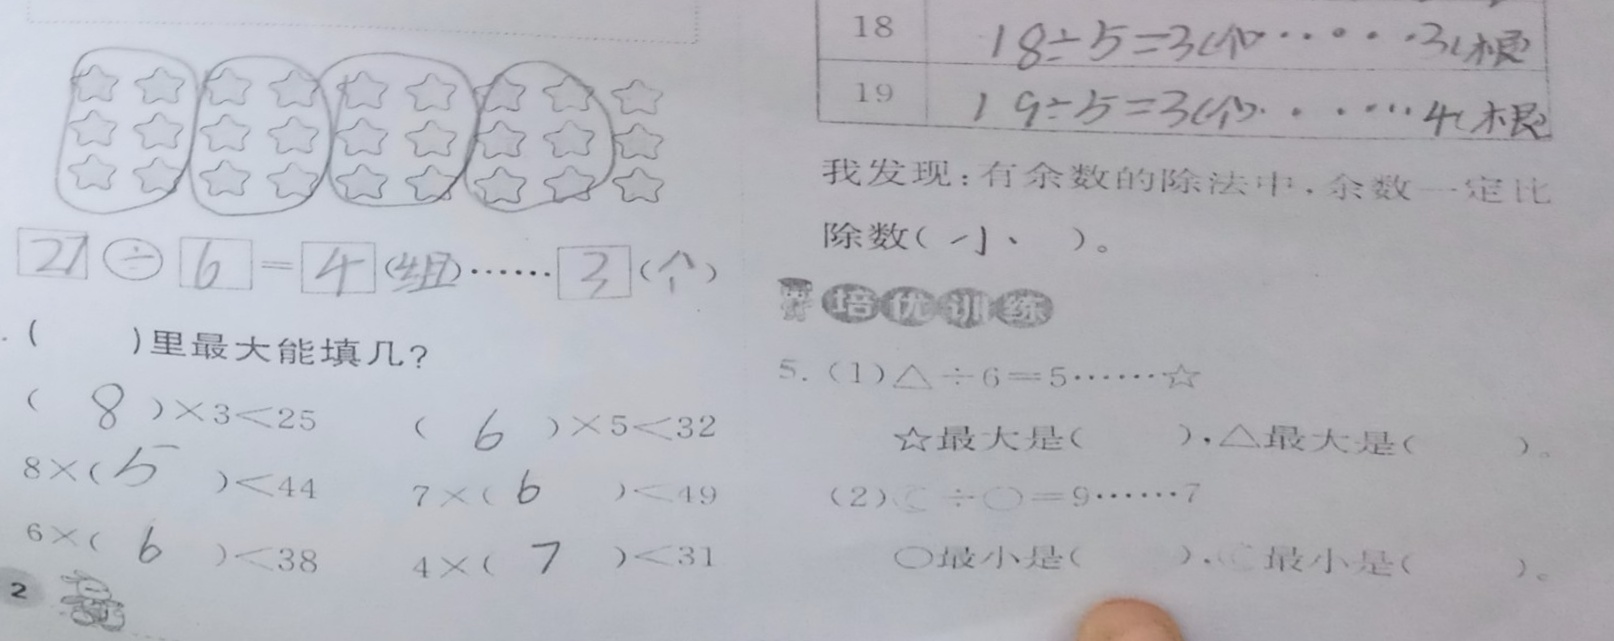 21÷6=4(组)……3(个)
.( )里最大能填几?
( 8 )×3<25 ( 6 )×5<32
8×( 5 )<44 7×( 6 )<49
6×( 6 )<38 4×( 7 )<31
2
18 18÷5=3(个)……3(根
19 19÷5=3(个)……4(根
我发现:有余数的除法中,余数一定比
除数( 小、 )。
培优训练
5.(1)△÷6=5……☆
☆最大是( ),△最大是( )。
(2)☾÷○=9……7
○最小是( ),☾最小是( )。